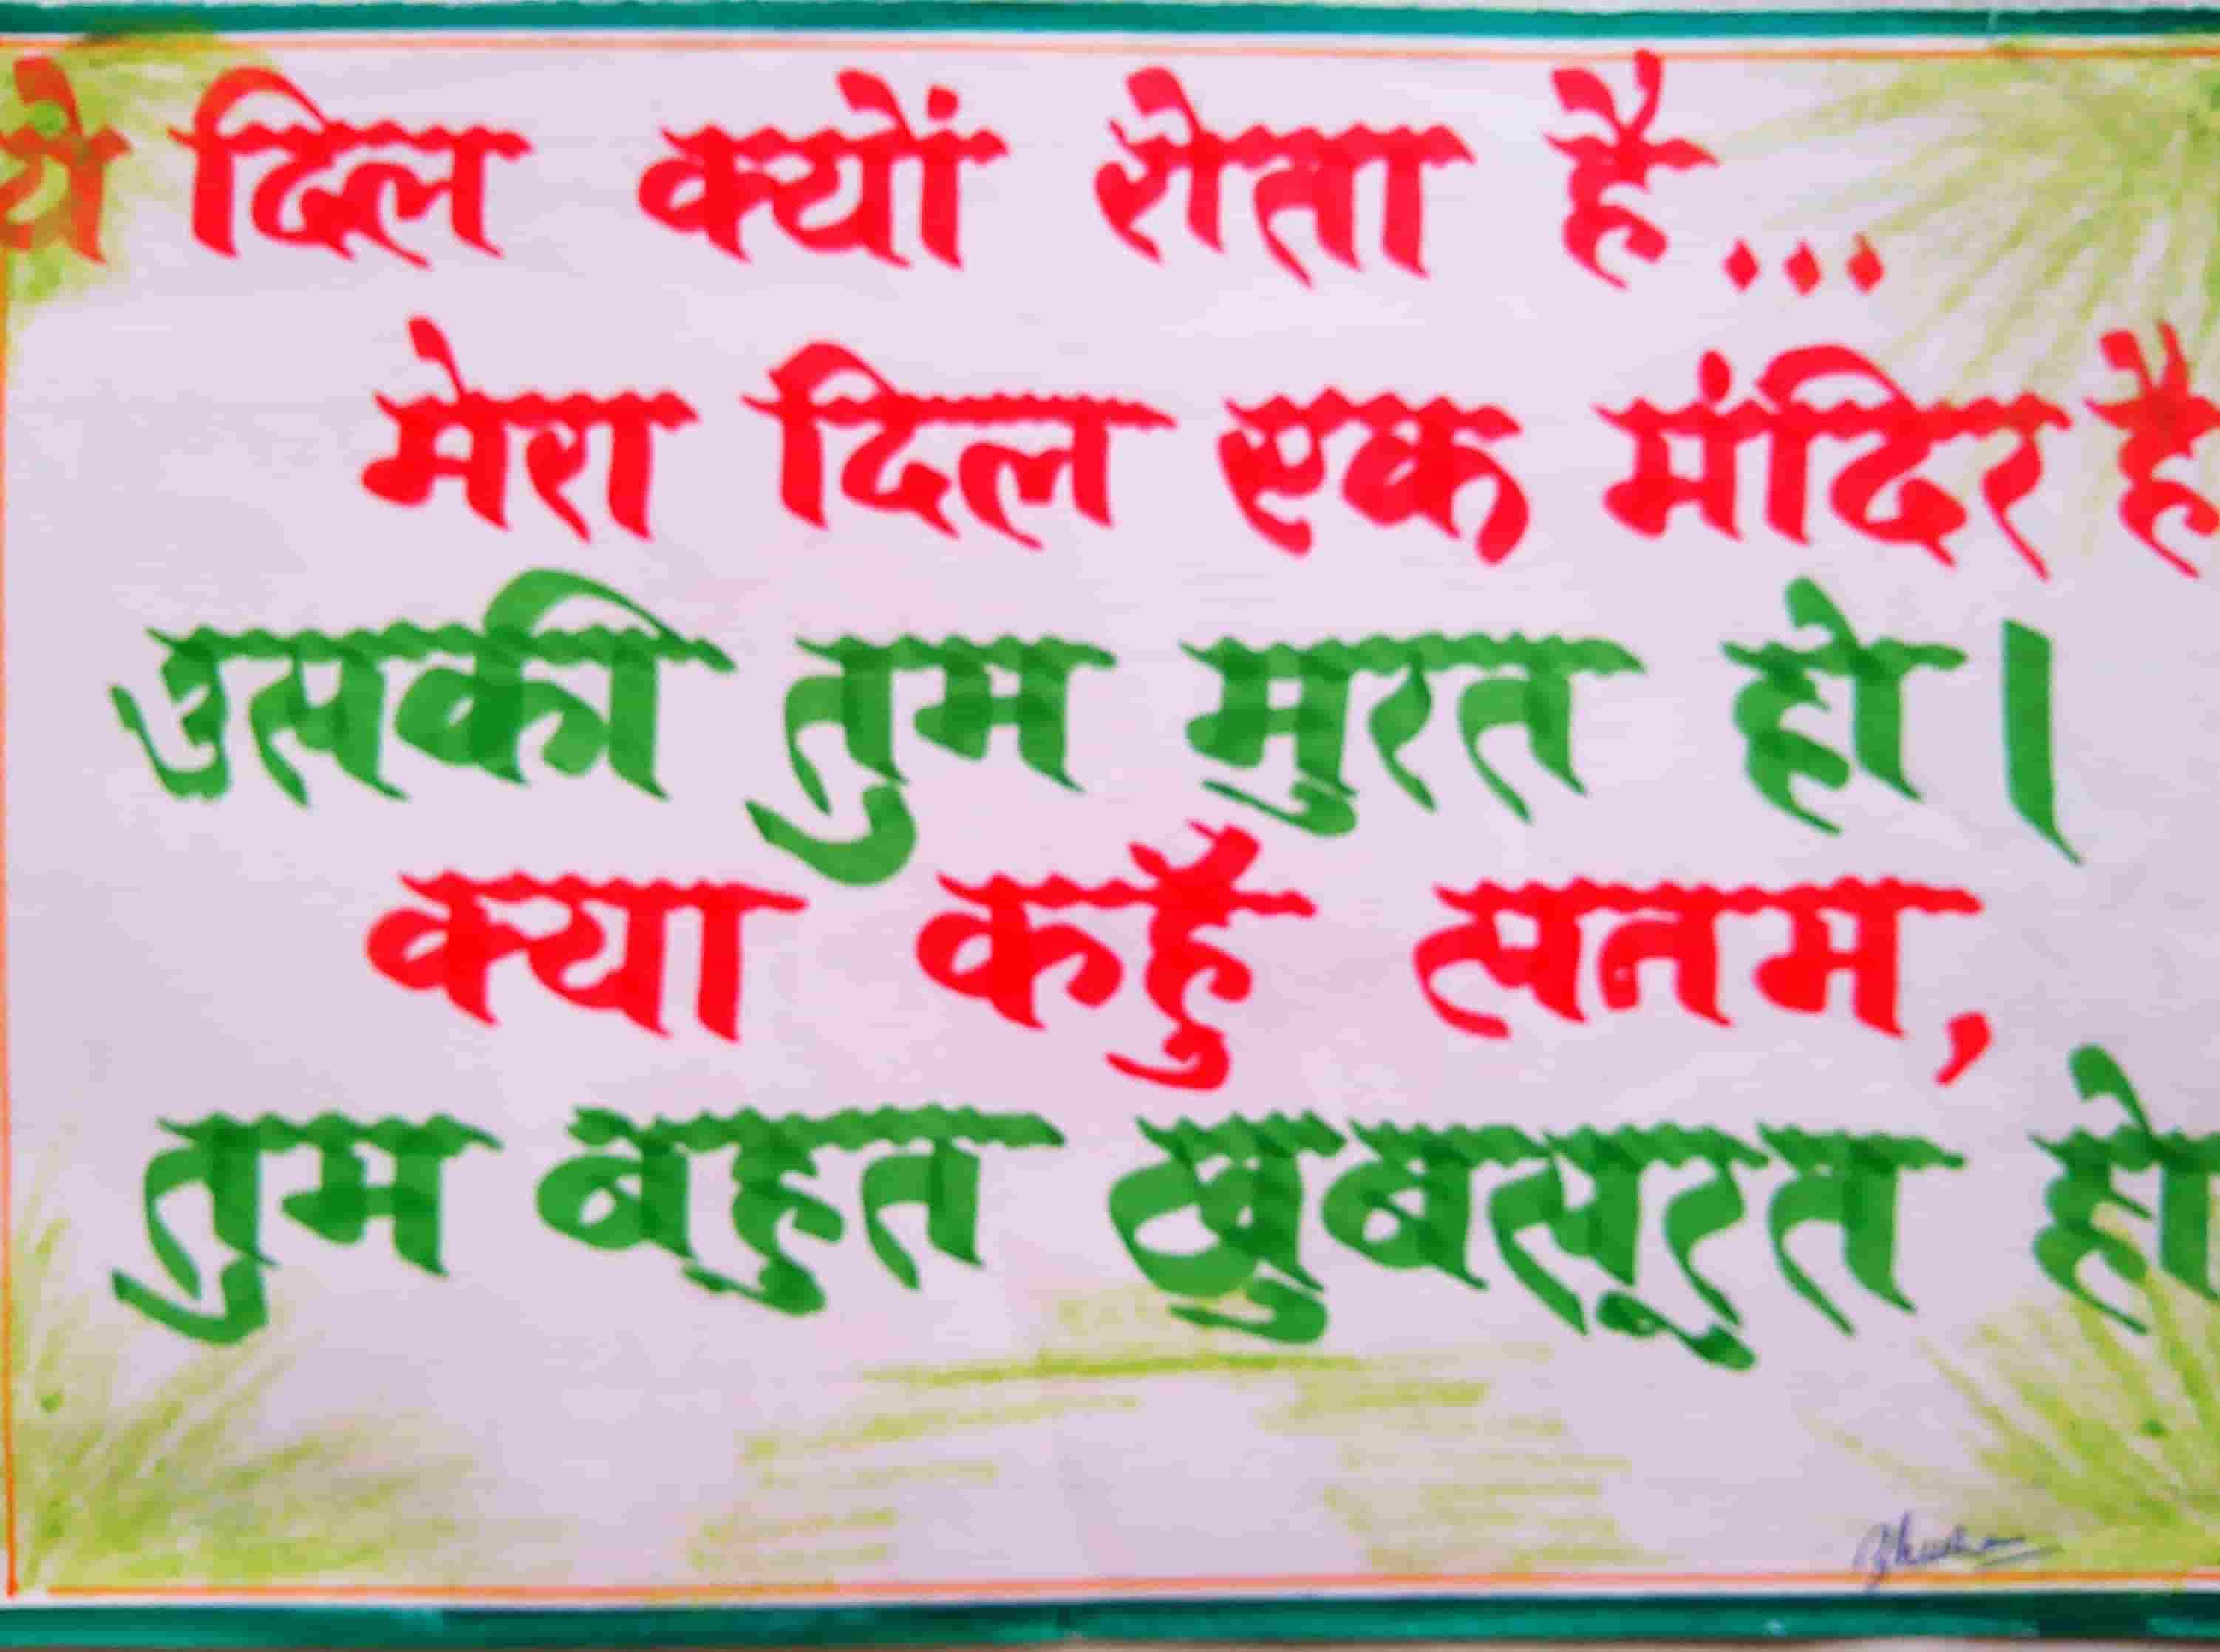 ये दिल क्यों रोता है...
मेरा दिल एक मंदिर है
उसकी तुम मुरत हो।
क्या कहुँ सनम,
तुम बहुत खुबसुरत हो